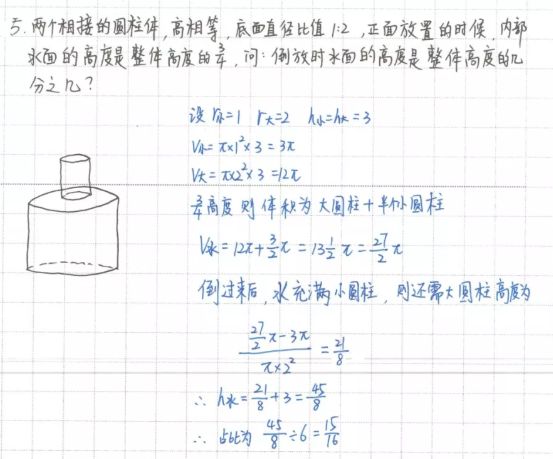 5. 两个相接的圆柱体,高相等,底面直径比值1:2,正面放置的时候,内部
水面的高度是整体高度的3/4,问:倒放时水面的高度是整体高度的几
分之几?
设 r小=1 r大=2 h小=h大=3
V小=π×1²×3=3π
V大=π×2²×3=12π
3/4高度则体积为大圆柱+半个小圆柱
V水=12π+3/2π=13 1/2π=27/2π
倒过来后,水充满小圆柱,则还需大圆柱高度为
(27/2π-3π)/(π×2²)=21/8
∴ h水=21/8+3=45/8
∴ 占比为 45/8÷6=15/16